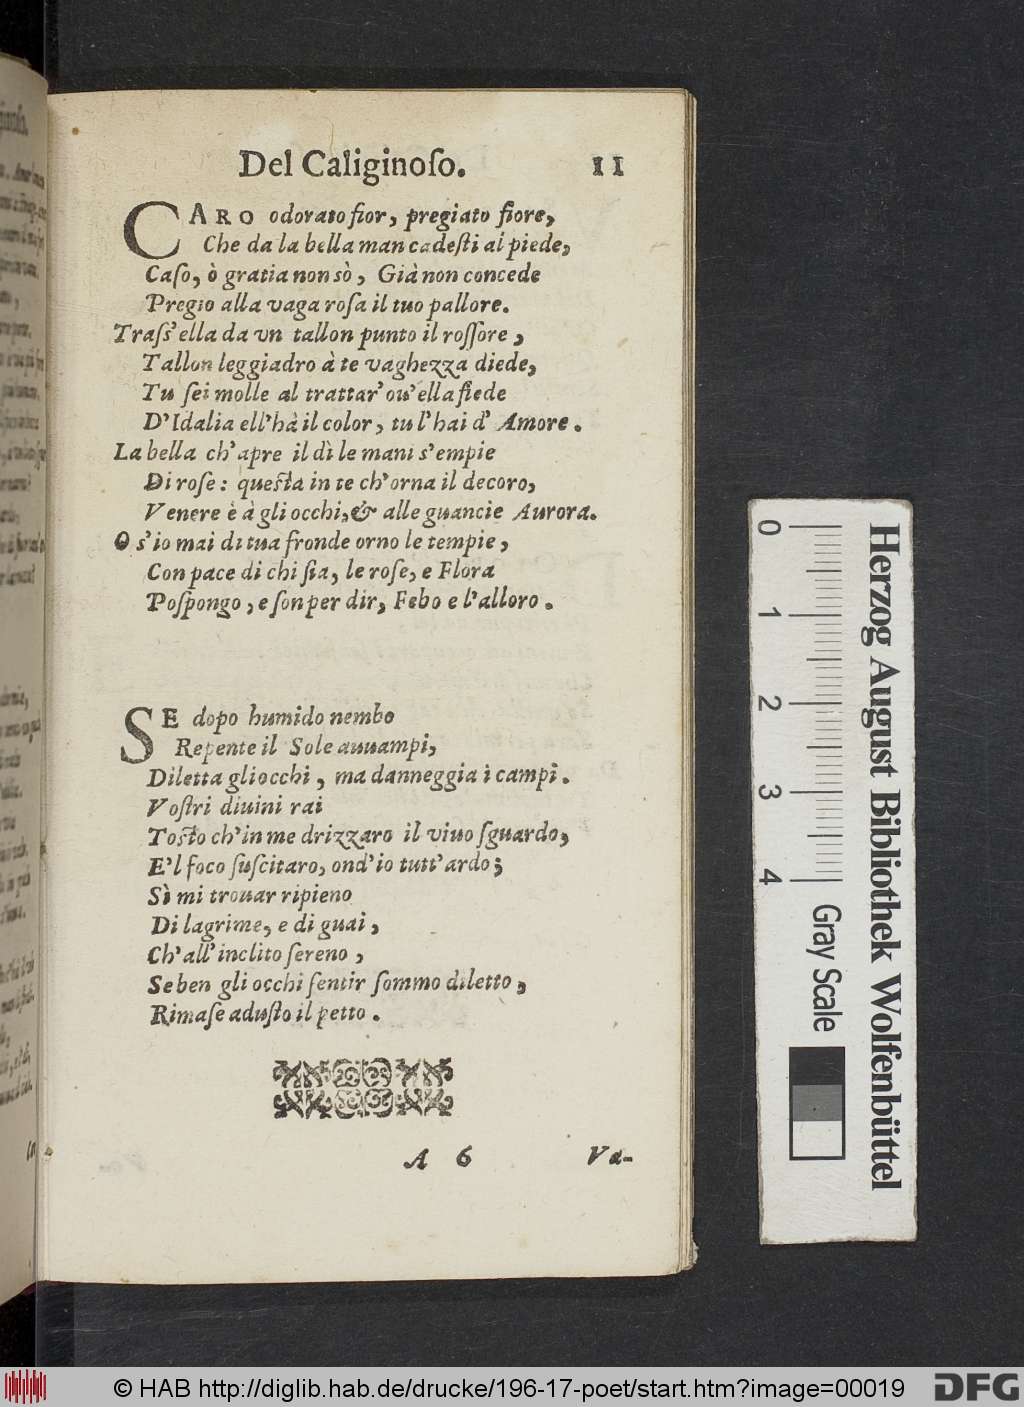 Del Caliginoſo. 11
CARO odorato fior, pregiato fiore,
Che da la bella man cadeſti al piede,
Caſo, ò gratia non sò, Già non concede
Pregio alla vaga roſa il tuo pallore.
Traſs'ella da vn tallon punto il roſſore,
Tallon leggiadro à te vaghezza diede,
Tu ſei molle al trattar' ou'ella fiede
D'Idalia ell'hà il color, tu l'hai d' Amore.
La bella ch'apre il dì le mani s'empie
Di roſe: queſta in te ch'orna il decoro,
Venere è à gli occhi, & alle guancie Aurora.
O s'io mai di tua fronde orno le tempie,
Con pace di chi ſia, le roſe, e Flora
Poſpongo, e ſon per dir, Febo e l'alloro.
SE dopo humido nembo
Repente il Sole auuampi,
Diletta gliocchi, ma danneggia i campi.
Voſtri diuini rai
Toſto ch'in me drizzaro il viuo ſguardo,
E'l foco ſuſcitaro, ond'io tutt'ardo;
Sì mi trouar ripieno
Di lagrime, e di guai,
Ch'all'inclito ſereno,
Se ben gli occhi ſentir ſommo diletto,
Rimaſe aduſto il petto.
A 6 Va-
0 1 2 3 4
Gray Scale
Herzog August Bibliothek Wolfenbüttel
© HAB http://diglib.hab.de/drucke/196-17-poet/start.htm?image=00019
DFG